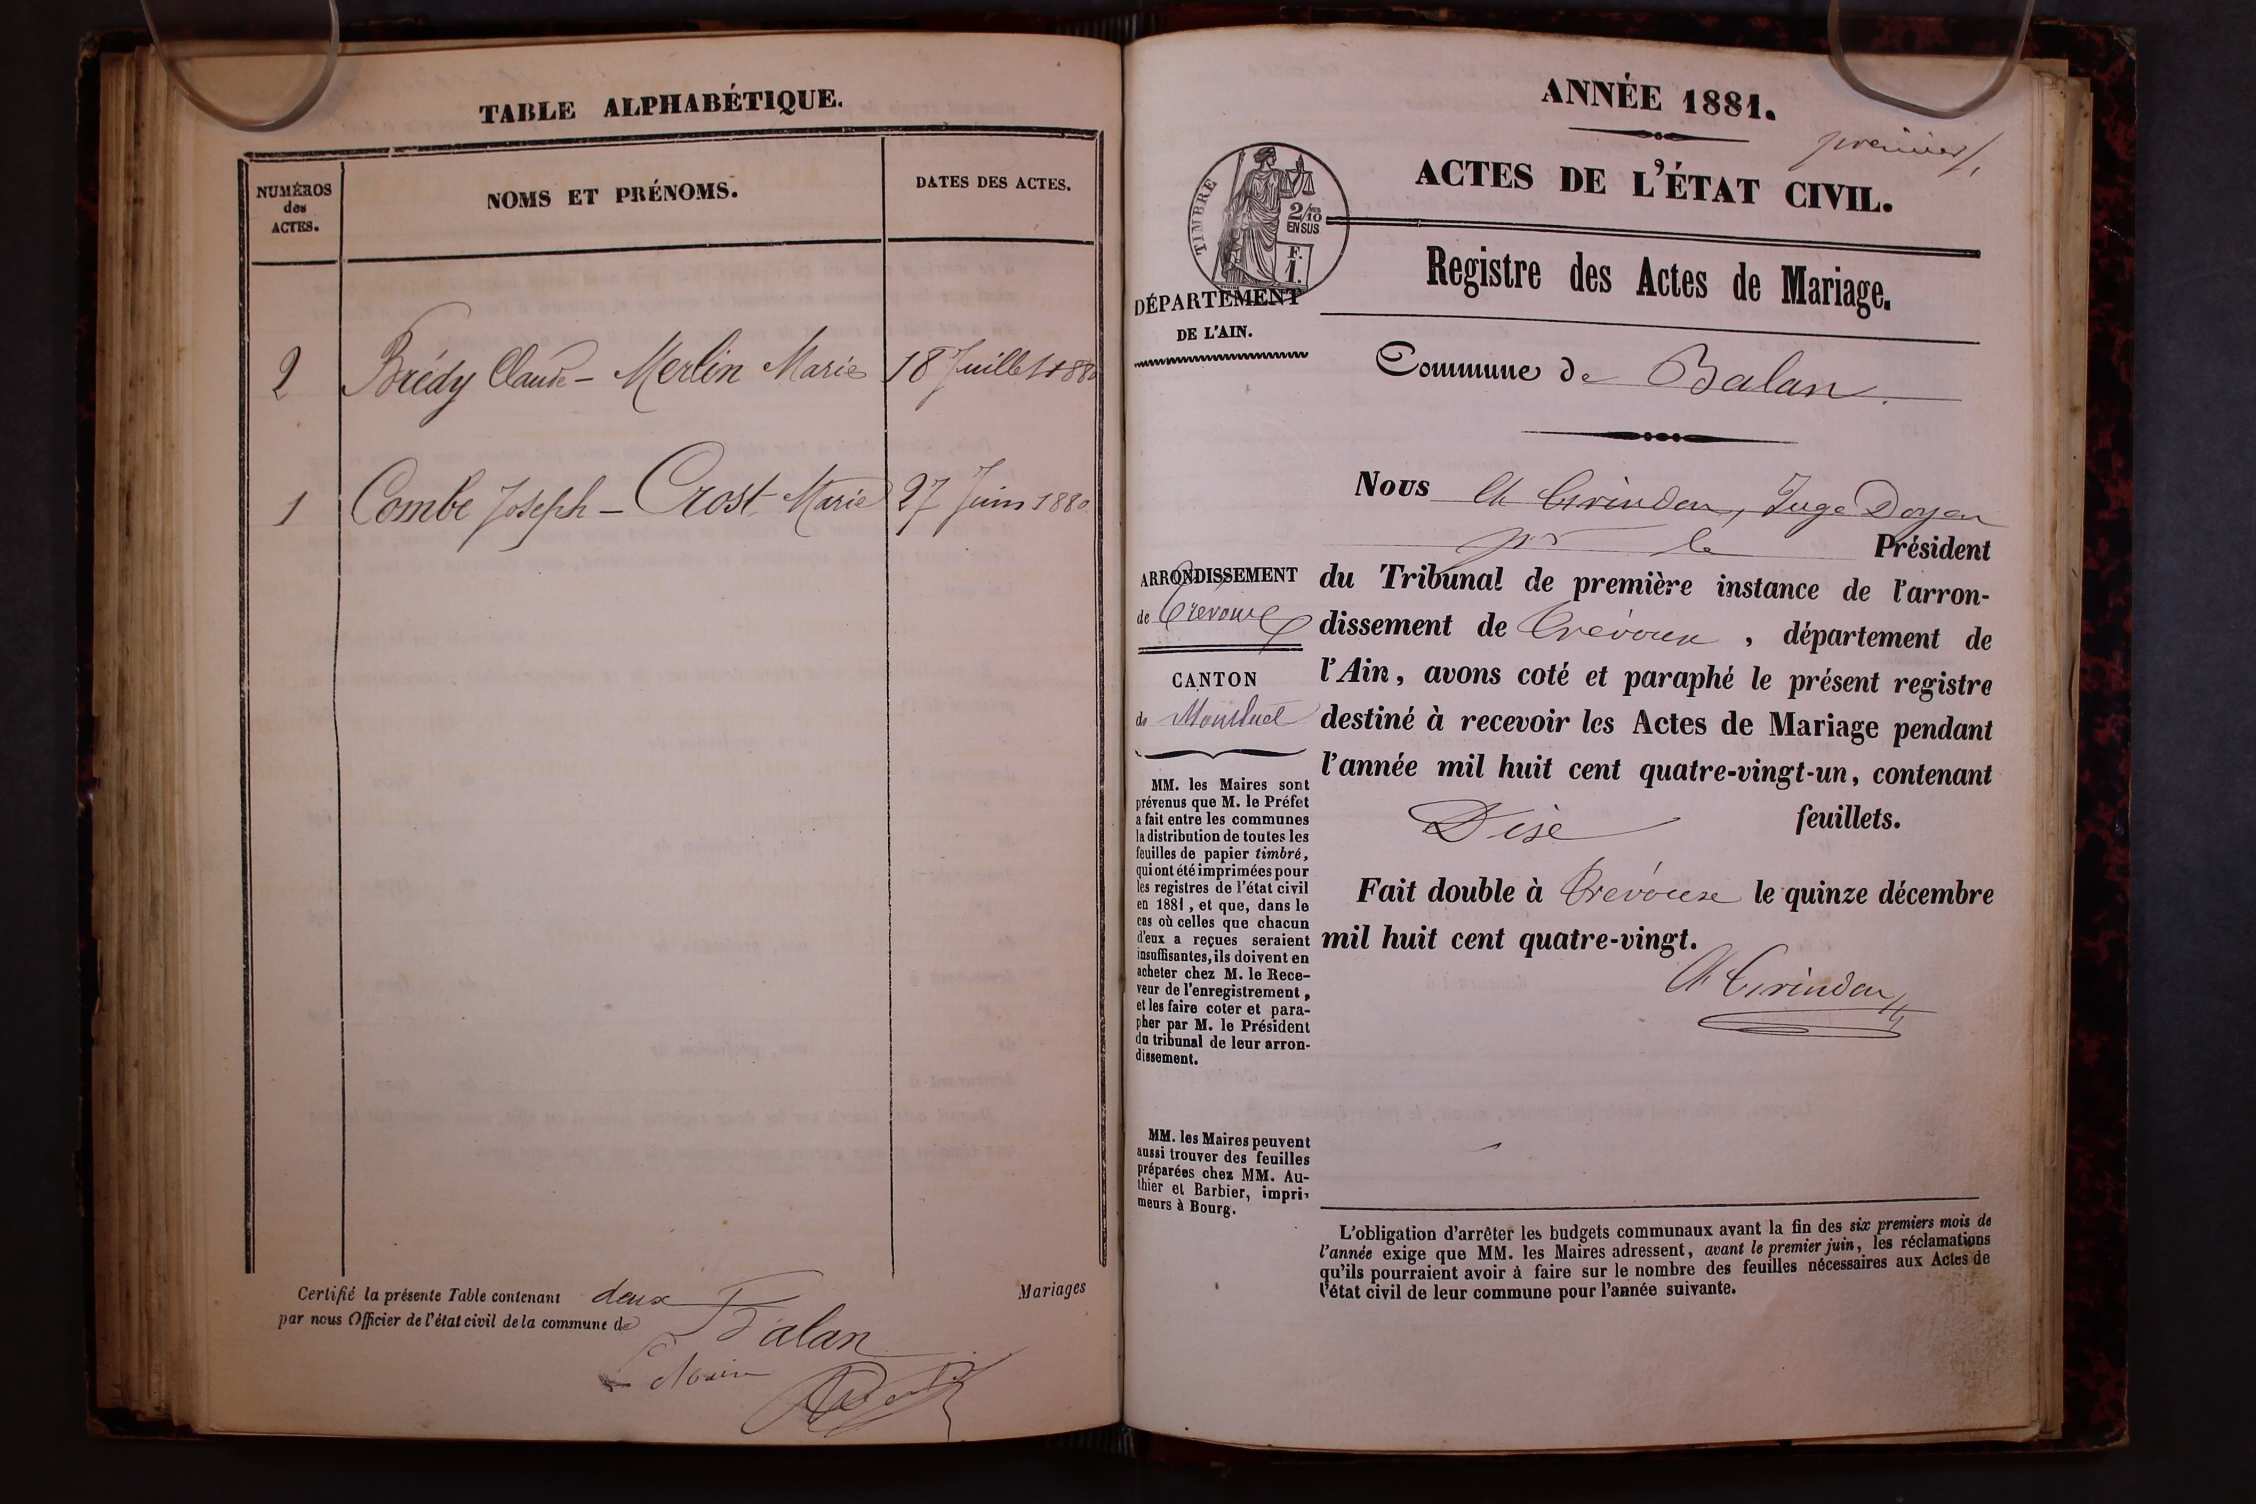 TABLE ALPHABÉTIQUE.
NUMÉROS
des
ACTES.
NOMS ET PRÉNOMS.
DATES DES ACTES.
2 Brédy Claude - Merlin Marie 18 Juillet 1880
1 Combe Joseph - Crost Marie 27 Juin 1880
Certifié la présente Table contenant deux Mariages
par nous Officier de l'état civil de la commune de Balan
Le Maire
ANNÉE 1881.
premier
ACTES DE L'ÉTAT CIVIL.
TIMBRE
2/10
EN SUS
F.
1.
DÉPARTEMENT
DE L'AIN.
Registre des Actes de Mariage.
Commune de Balan.
ARRONDISSEMENT
de Trévoux
CANTON
de Montluel
MM. les Maires sont
prévenus que M. le Préfet
a fait entre les communes
la distribution de toutes les
feuilles de papier timbré,
qui ont été imprimées pour
les registres de l'état civil
en 1881, et que, dans le
cas où celles que chacun
d'eux a reçues seraient
insuffisantes, ils doivent en
acheter chez M. le Rece-
veur de l'enregistrement,
et les faire coter et para-
pher par M. le Président
du tribunal de leur arron-
dissement.
MM. les Maires peuvent
aussi trouver des feuilles
préparées chez MM. Au-
thier et Barbier, impri-
meurs à Bourg.
Nous Juge Doyen
pr le Président
du Tribunal de première instance de l'arron-
dissement de Trévoux, département de
l'Ain, avons coté et paraphé le présent registre
destiné à recevoir les Actes de Mariage pendant
l'année mil huit cent quatre-vingt-un, contenant
feuillets.
Fait double à Trévoux le quinze décembre
mil huit cent quatre-vingt.
L'obligation d'arrêter les budgets communaux avant la fin des six premiers mois de
l'année exige que MM. les Maires adressent, avant le premier juin, les réclamations
qu'ils pourraient avoir à faire sur le nombre des feuilles nécessaires aux Actes de
l'état civil de leur commune pour l'année suivante.